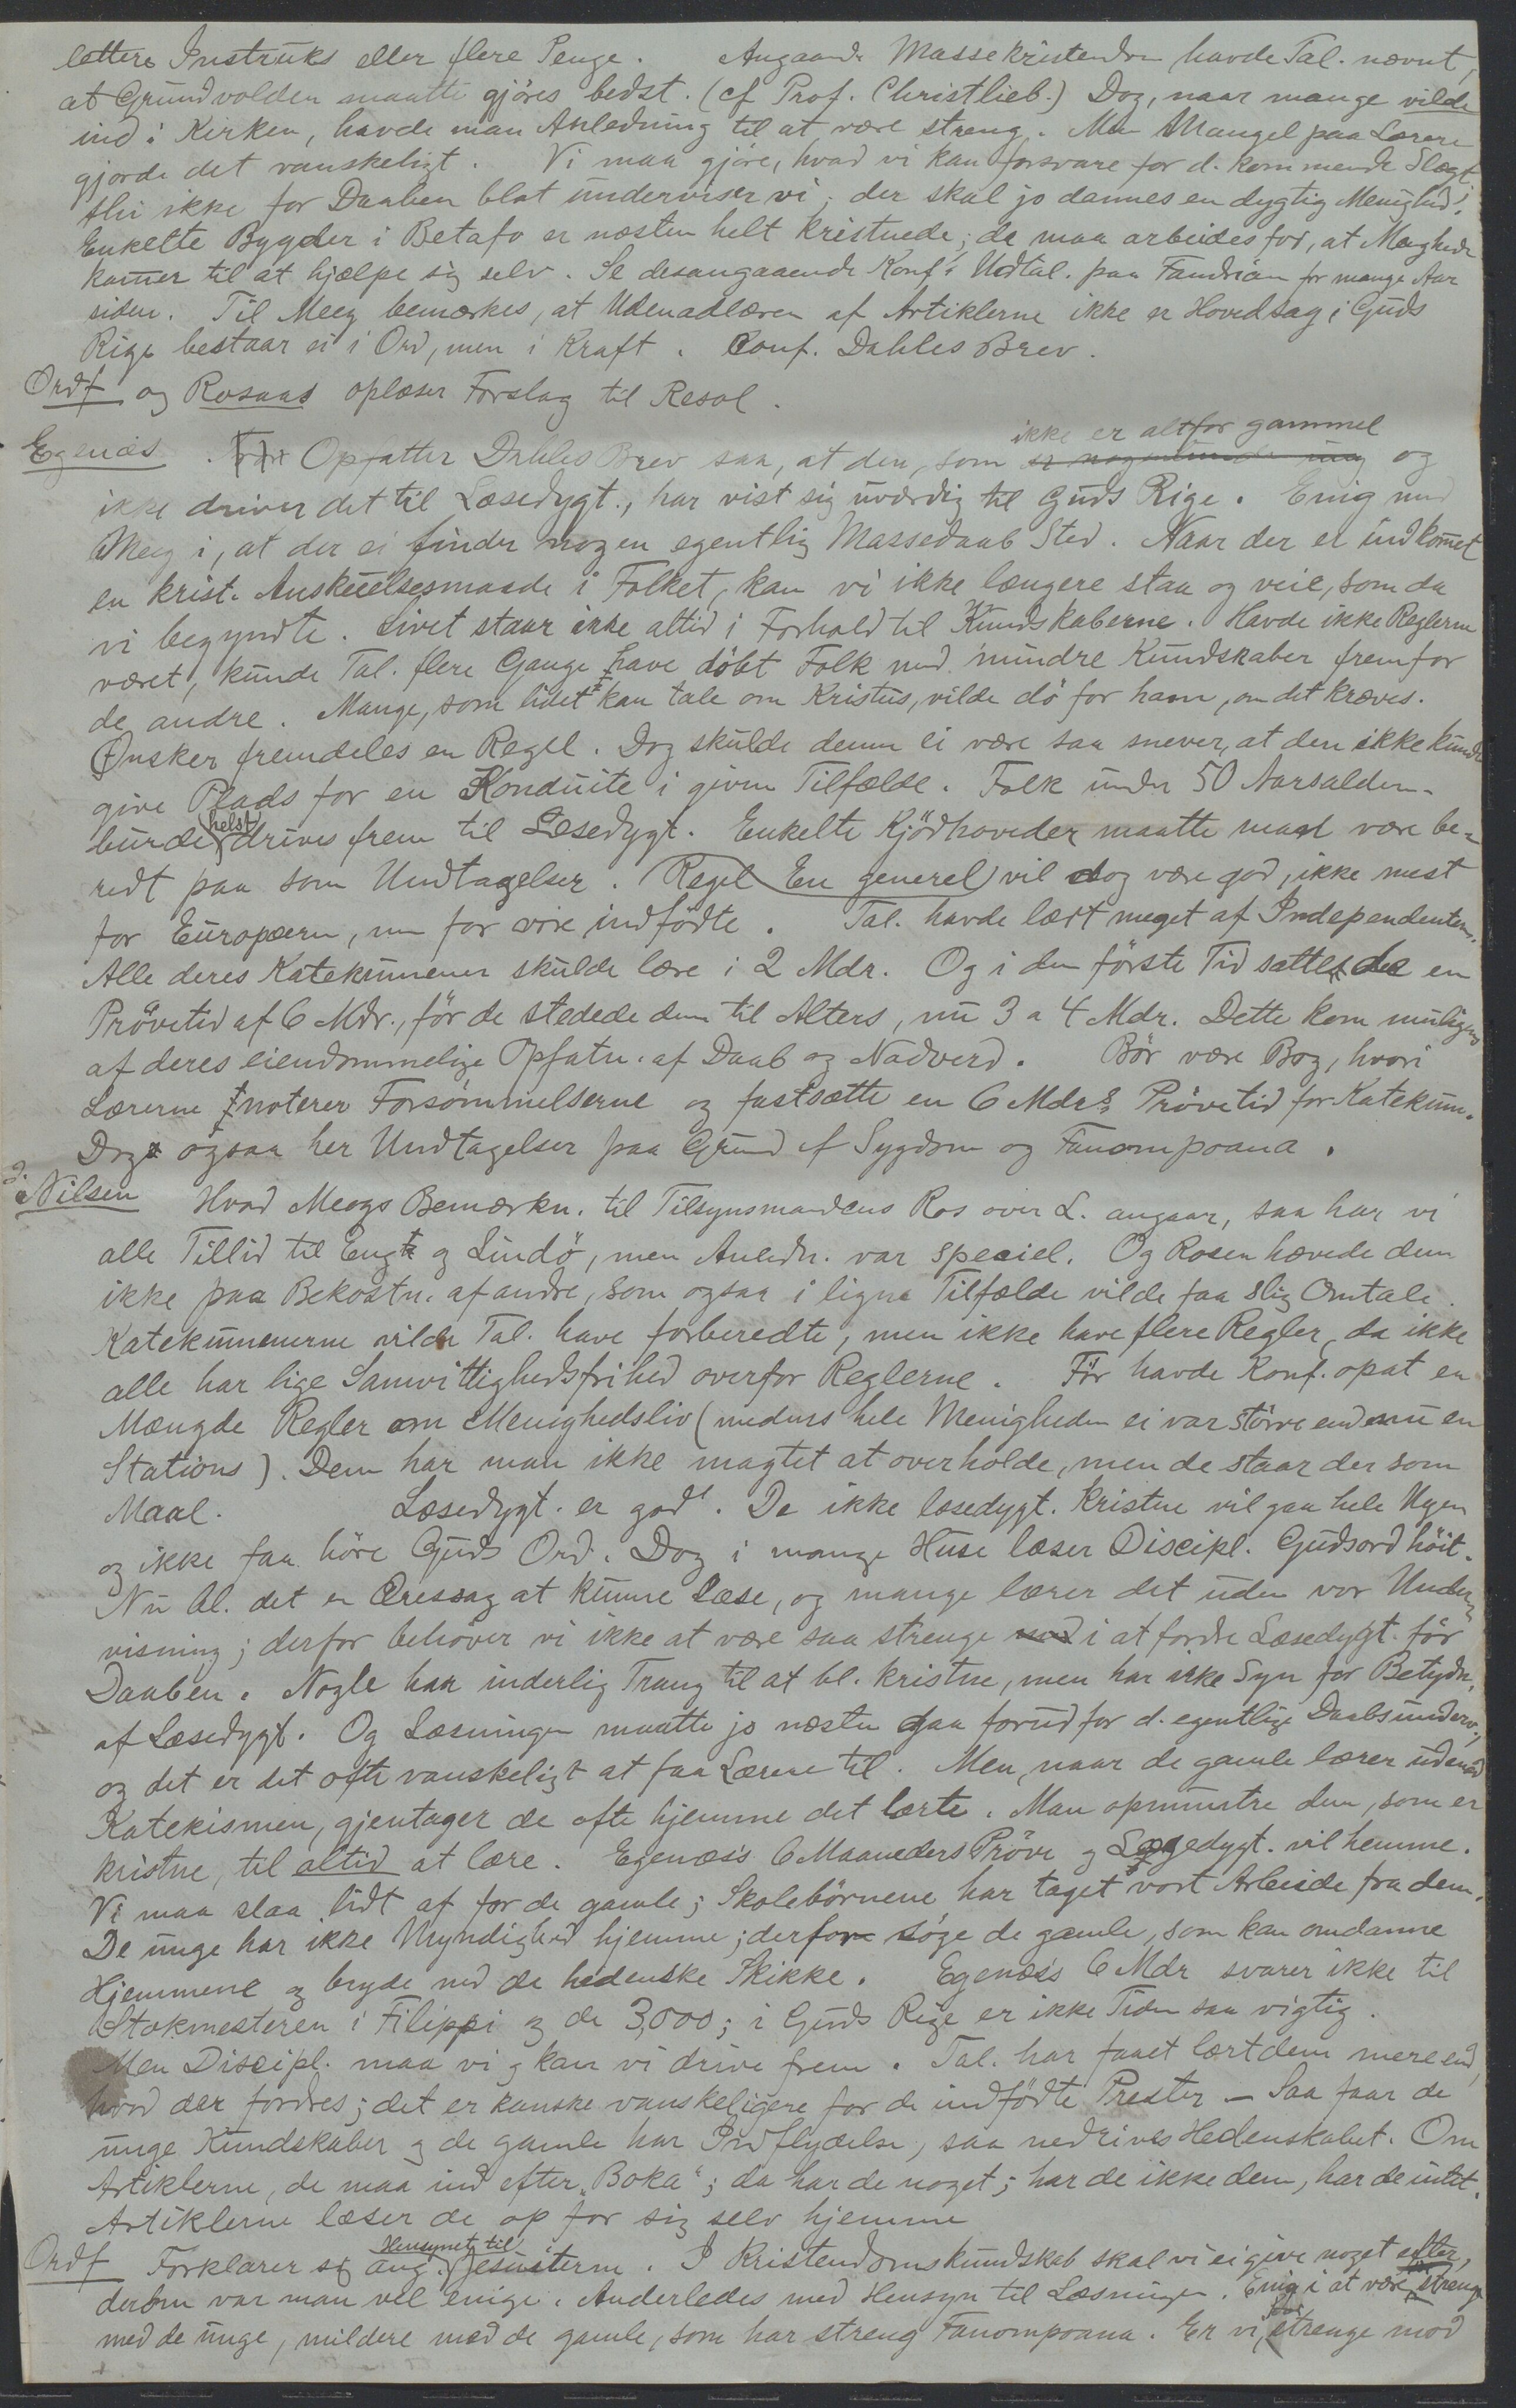 lettere Instruks eller flere Penge. Angaande Massekristendom havde Tal. nævnt,
at Grundvolden maatte gjöres bedst. (cf Prof. Christlieb.) Dog, naar mange vilde
ind i Kirken, havde man Anledning til at være streng. Men Mangel paa Lærere
gjorde det vanskeligt. Vi maa gjöre, hvad vi kan forsvare for d. kommende Slægt
thi ikke for Daaben blot underviser vi; der skal jo dannes en dygtig Menighed!
Enkelte Bygder i Betafo er næsten helt kristnede; de maa arbeides for, at Mgheden
kommer til at hjælpe sig selv. Se desangaaende Konf's Udtal. paa Fandriana for mange Aar
siden. Til Meeg bemærkes, at Udenadlæren af Artiklerne ikke er Hovedsag; Guds
Rige bestaar ei i Ord, men i Kraft. Conf. Dahles Brev.
Ordf og Rosaas oplæser Forslag til Resol.
ikke er altfor gammel
Egenæs . Opfatter Dahles Brev saa, at den, som er nogenlunde ung og
ikke driver det til Læsedygt., har vist sig uværdig til Guds Rige. Enig med
Meeg i, at der ei finder nogen egentlig Massedaab Sted. Naar der er indkommet
en krist. Anskuelsesmaade i Folket, kan vi ikke længere staa og veie, som da
vi begyndte. Livet staar ikke altid i Forhold til Kundskaberne. Havde ikke Reglerne
været, kunde Tal. flere Gange have döbt Folk med mindre Kundskaber fremfor
de andre. Mange, som lidet kan tale om Kristus, vilde dö for ham, om det kræves.
Önsker fremdeles en Regel. Dog skulde denne ei være saa snever, at den ikke kunde
give Plads for en Konduite i givne Tilfælde. Folk under 50 Aarsalderen
burde helst drives frem til Læsedygt. Enkelte Kjödhoveder maatte man være be-
redt paa som Undtagelser. Regel En generel vil dog være god, ikke mest
for Europæern, men for vore indfödte. Tal. havde lært meget af Independenterne.
Alle deres Katekumener skulde lære i 2 Mdr. Og i den förste Tid sattes de en
Prövetid af 6 Mdr., för de stedede dem til Alters, nu 3 a 4 Mdr. Dette kom muligens
af deres eiendommelige Opfatn. af Daab og Nadverd. Bör være Bog, hvori
Lærerne noterer Forsömmelserne og fastsætte en 6 Mdrs Prövetid for Katekum.
Dog ogsaa her Undtagelser paa Grund af Sygdom og Fanompoana.
Nilsen Hvad Meegs Bemærkn. til Tilsynsmandens Ros over L. angaar, saa har vi
alle Tillid til Engh og Lindö, men Anledn. var speciel. Og Rosen hævede dem
ikke paa Bekostn. af andre, som ogsaa i ligne Tilfælde vilde faa slig Omtale.
Katekumenerne vilde Tal. have forberedte, men ikke have flere Regler, da ikke
alle har lige Samvittighedsfrihed overfor Reglerne. För havde Konf. opsat en
Mængde Regler om Menighedsliv (medens hele Menigheden ei var större end nu en
Stations). Dem har man ikke magtet at overholde, men de staar der som
Maal. Læsedygt. er god. De ikke læsedygt. kristne vil gaa hele Ugen
og ikke faa höre Guds Ord. Dog i mange Huse læser Discipl. Gudsord höit.
Nu bl. det en Æressag at kunne læse, og mange lærer det uden vor Under-
visning; derfor behöver vi ikke at være saa strenge med i at fordre Læsedygt. för
Daaben. Nogle har inderlig Trang til at bl. kristne, men har ikke Syn for Betydn.
af Læsedygt. Og Læsningen maatte jo næsten gaa forud for d. egentlige Daabsunderv.,
og det er det ofte vanskeligt at faa Lærere til. Men, naar de gamle lærer udenad
Katekismen, gjentager de ofte hjemme det lærte. Man opmuntre dem, som er
kristne, til altid at lære. Egenæs's 6 Maaneders Pröve og Læsedygt. vil hemme.
Vi maa slaa lidt af for de gamle; Skolebörnene har taget vort Arbeide fra dem.
De unge har ikke Myndighed hjemme; derfor söge de gamle, som kan omdanne
Hjemmene og bryde ned de hedenske Skikke. Egenæs's 6 Mdr svarer ikke til
Stokmesteren i Filippi og de 3,000; i Guds Rige er ikke Tiden saa vigtig.
Men Discipl. maa vi og kan vi drive frem. Tal. har faaet lært dem mere end,
hvad der fordres; det er kanske vanskeligere for de indfödte Prester – Saa faar de
unge Kundskaber og de gamle har Indflydelse, saa nedrives Hedenskabet. Om
Artiklerne, de maa ind efter "Boka"; da har de noget; har de ikke dem, har de intet.
Artiklerne læser de op for sig selv hjemme
Hensynet til
Ordf Forklarer sig ang. Jesuiterne. I Kristendomskundskab skal vi ei give noget efter,
derom var man vel enige. Anderledes med Hensyn til Læsningen. Enig i at være streng
med de unge, mildere med de gamle, som har streng Fanompoana. Er vi for strenge mod